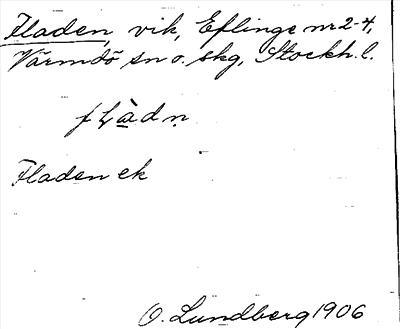 Fladen, vik, Eflinge nr 2-4,
Värmdö sn o. skg, Stockh. l.
fḷàdṇ
Fladen ek
O. Lundberg 1906